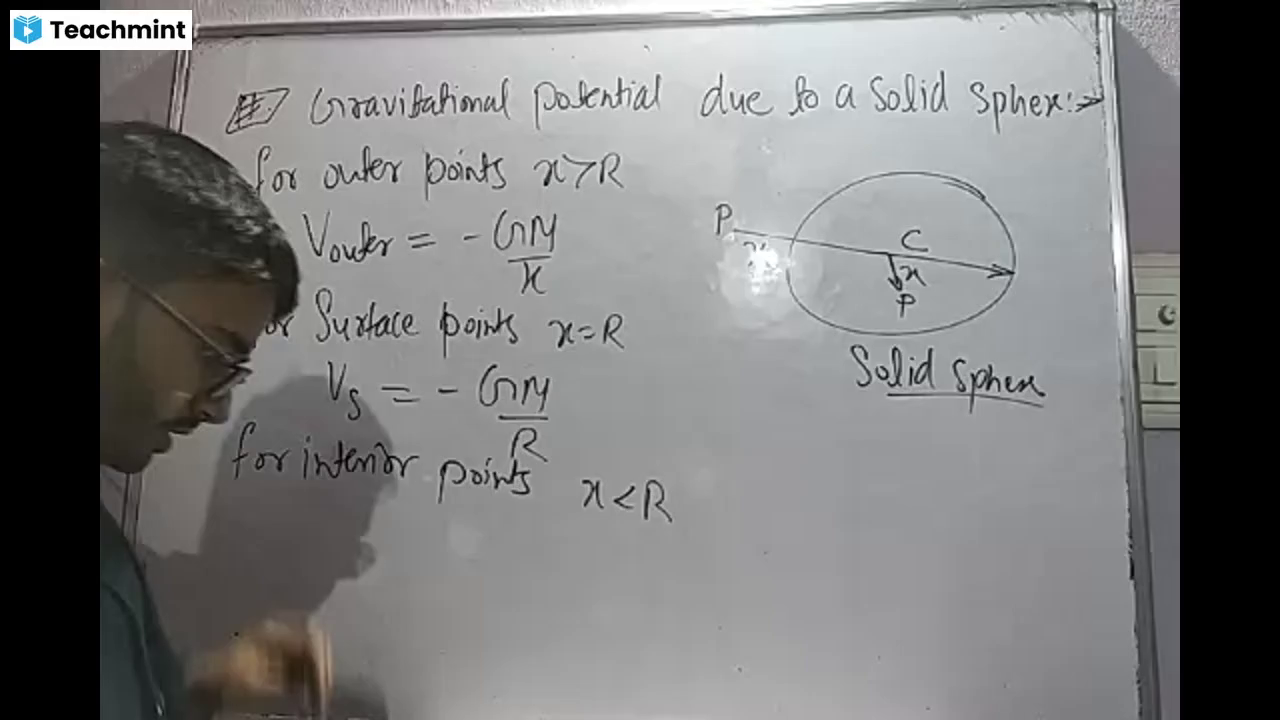 Teachmint
# Gravitational potential due to a Solid Sphere:->
for outer points x>R
Vouter = - GM/x
or Surface points x=R
Vs = - GM/R
for interior points x<R
P
x
C
x
P
Solid Sphere